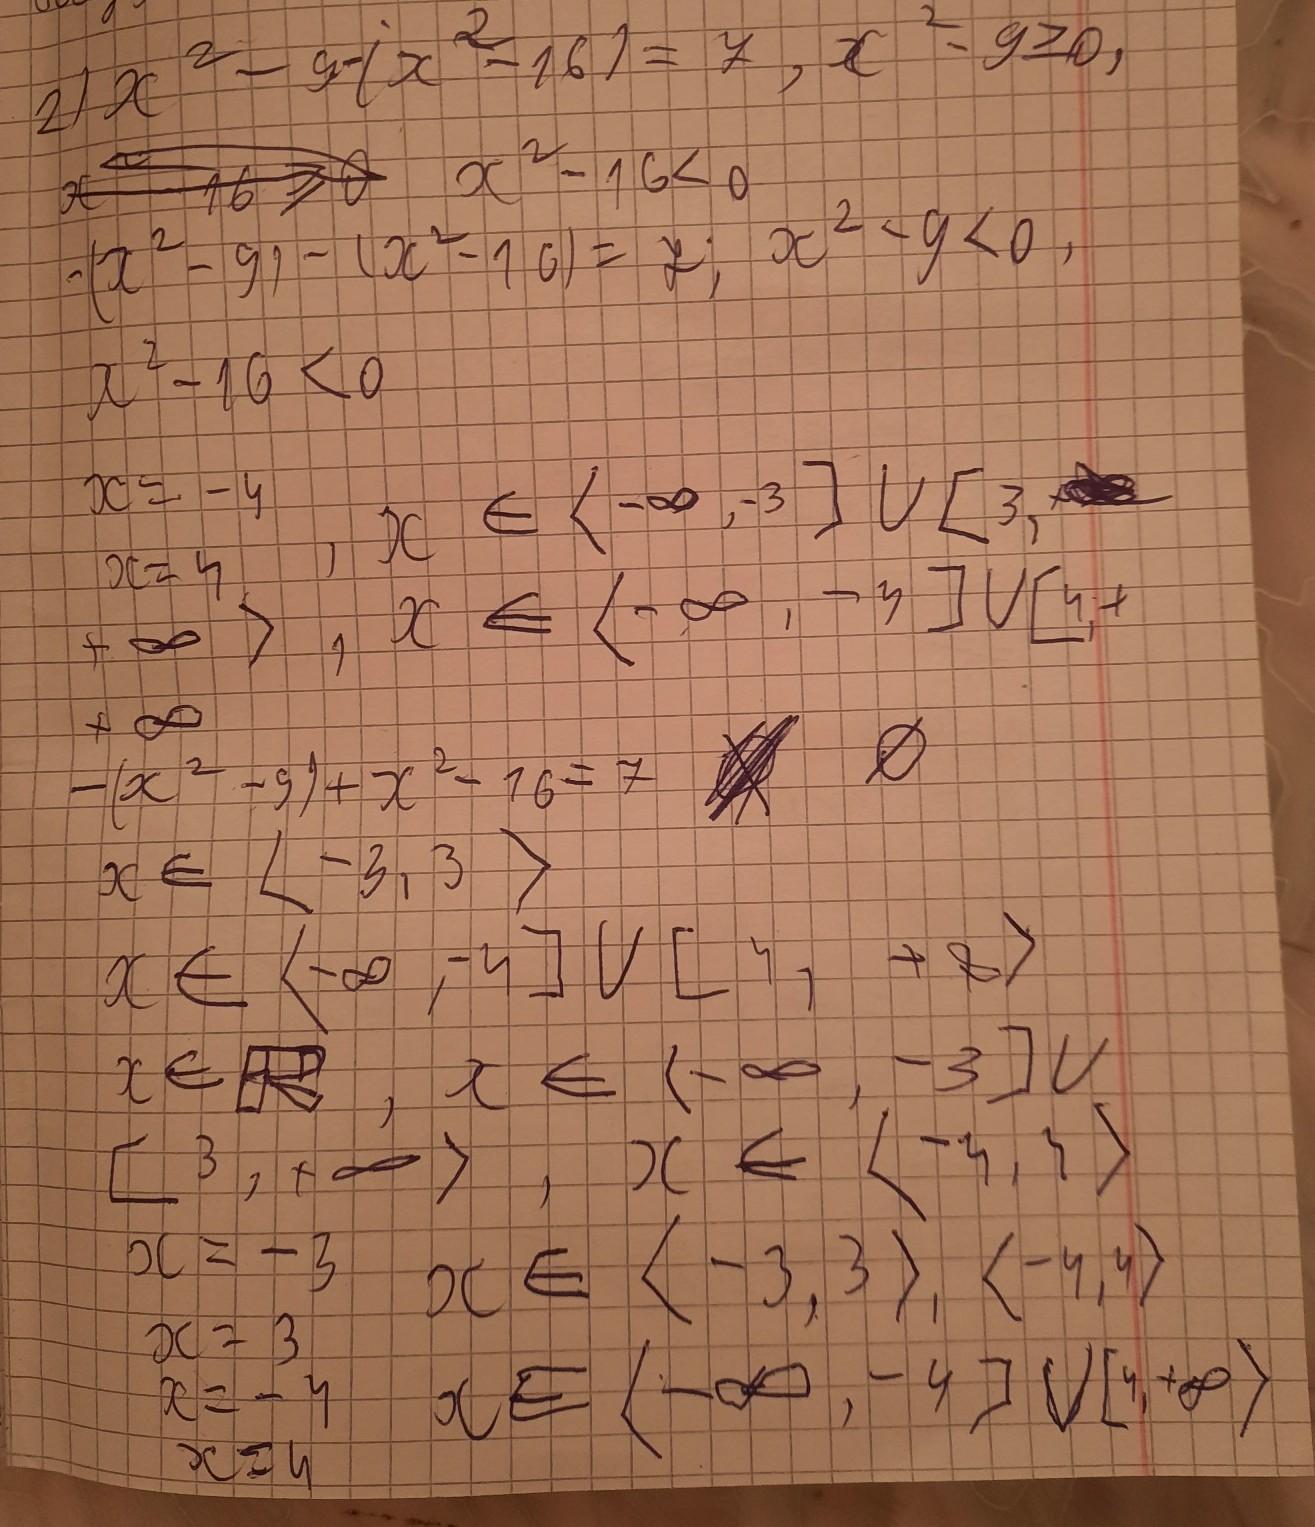 2) x² - 9 - (x² - 16) = 7, x² - 9 ≥ 0,
x² - 16 < 0
-(x² - 9) - (x² - 16) = 7, x² - 9 < 0,
x² - 16 < 0
x = -4
x = 4, x ∈ ⟨-∞, -3] ∪ [3,
+∞⟩, x ∈ ⟨-∞, -4] ∪ [4, +
+∞
-(x² - 9) + x² - 16 = 7 ∅
x ∈ ⟨-3, 3⟩
x ∈ ⟨-∞, -4] ∪ [4, +∞⟩
x ∈ , x ∈ ⟨-∞, -3] ∪
[3, +∞⟩, x ∈ ⟨-4, 4⟩
x = -3 x ∈ ⟨-3, 3⟩, ⟨-4, 4⟩
x = 3
x = -4 x ∈ ⟨-∞, -4] ∪ [4, +∞⟩
x = 4